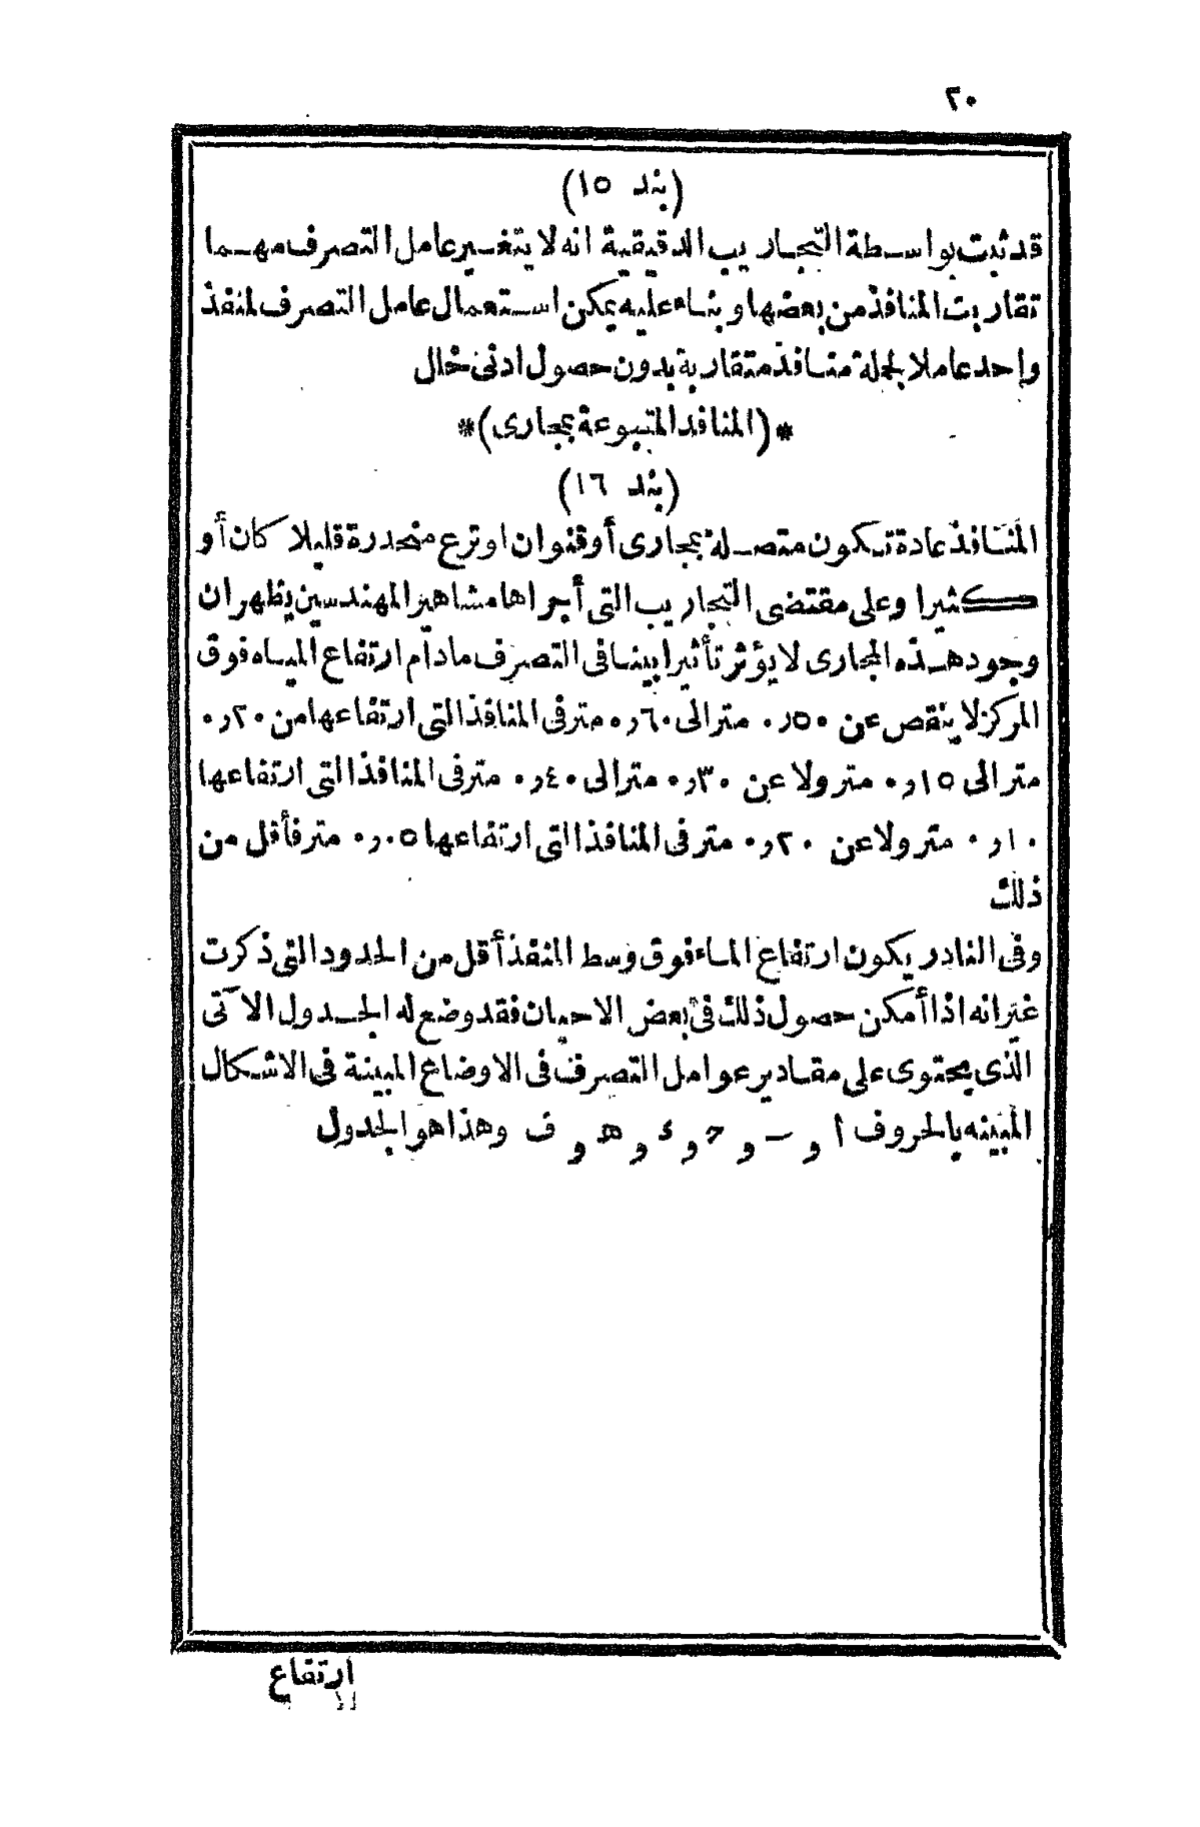 ٢٠
(بند ١٥)
قد ثبت بواسطة التجاريب الدقيقية انه لا يتغير عامل التصرف مهما
تقاربت المنافذ من بعضها وبناء عليه يمكن استعمال عامل التصرف لمنفذ
واحد عاملا لجملة منافذ متقاربة بدون حصول ادنى خلل
*(المنافذ المتبوعة بمجارى)*
(بند ١٦)
المنافذ عادة تكون متصلة بمجارى أوقنوان اوترع منحدرة قليلا كان أو
كثيرا وعلى مقتضى التجاريب التى أجراها مشاهير المهندسين يظهر ان
وجود هذه المجارى لا يؤثر تأثيرا بينا فى التصرف مادام ارتفاع المياه فوق
المركز لا ينقص عن ٥٠ر٠ متر الى ٦٠ر٠ متر فى المنافذ التى ارتفاعها من ٢٠ر٠
متر الى ١٥ر٠ متر ولا عن ٣٠ر٠ متر الى ٤٠ر٠ متر فى المنافذ التى ارتفاعها
١٠ر٠ متر ولا عن ٢٠ر٠ متر فى المنافذ التى ارتفاعها ٠٥ر٠ متر فأقل من
ذلك
وفى النادر يكون ارتفاع الماء فوق وسط المنفذ أقل من الحدود التى ذكرت
غير انه اذا أمكن حصول ذلك فى بعض الاحيان فقد وضع له الجدول الآتى
الذى يحتوى على مقادير عوامل التصرف فى الاوضاع المبينة فى الاشكال
المبينه بالحروف أ و ب و ح و ء و ه و ف وهذا هو الجدول
ارتفاع